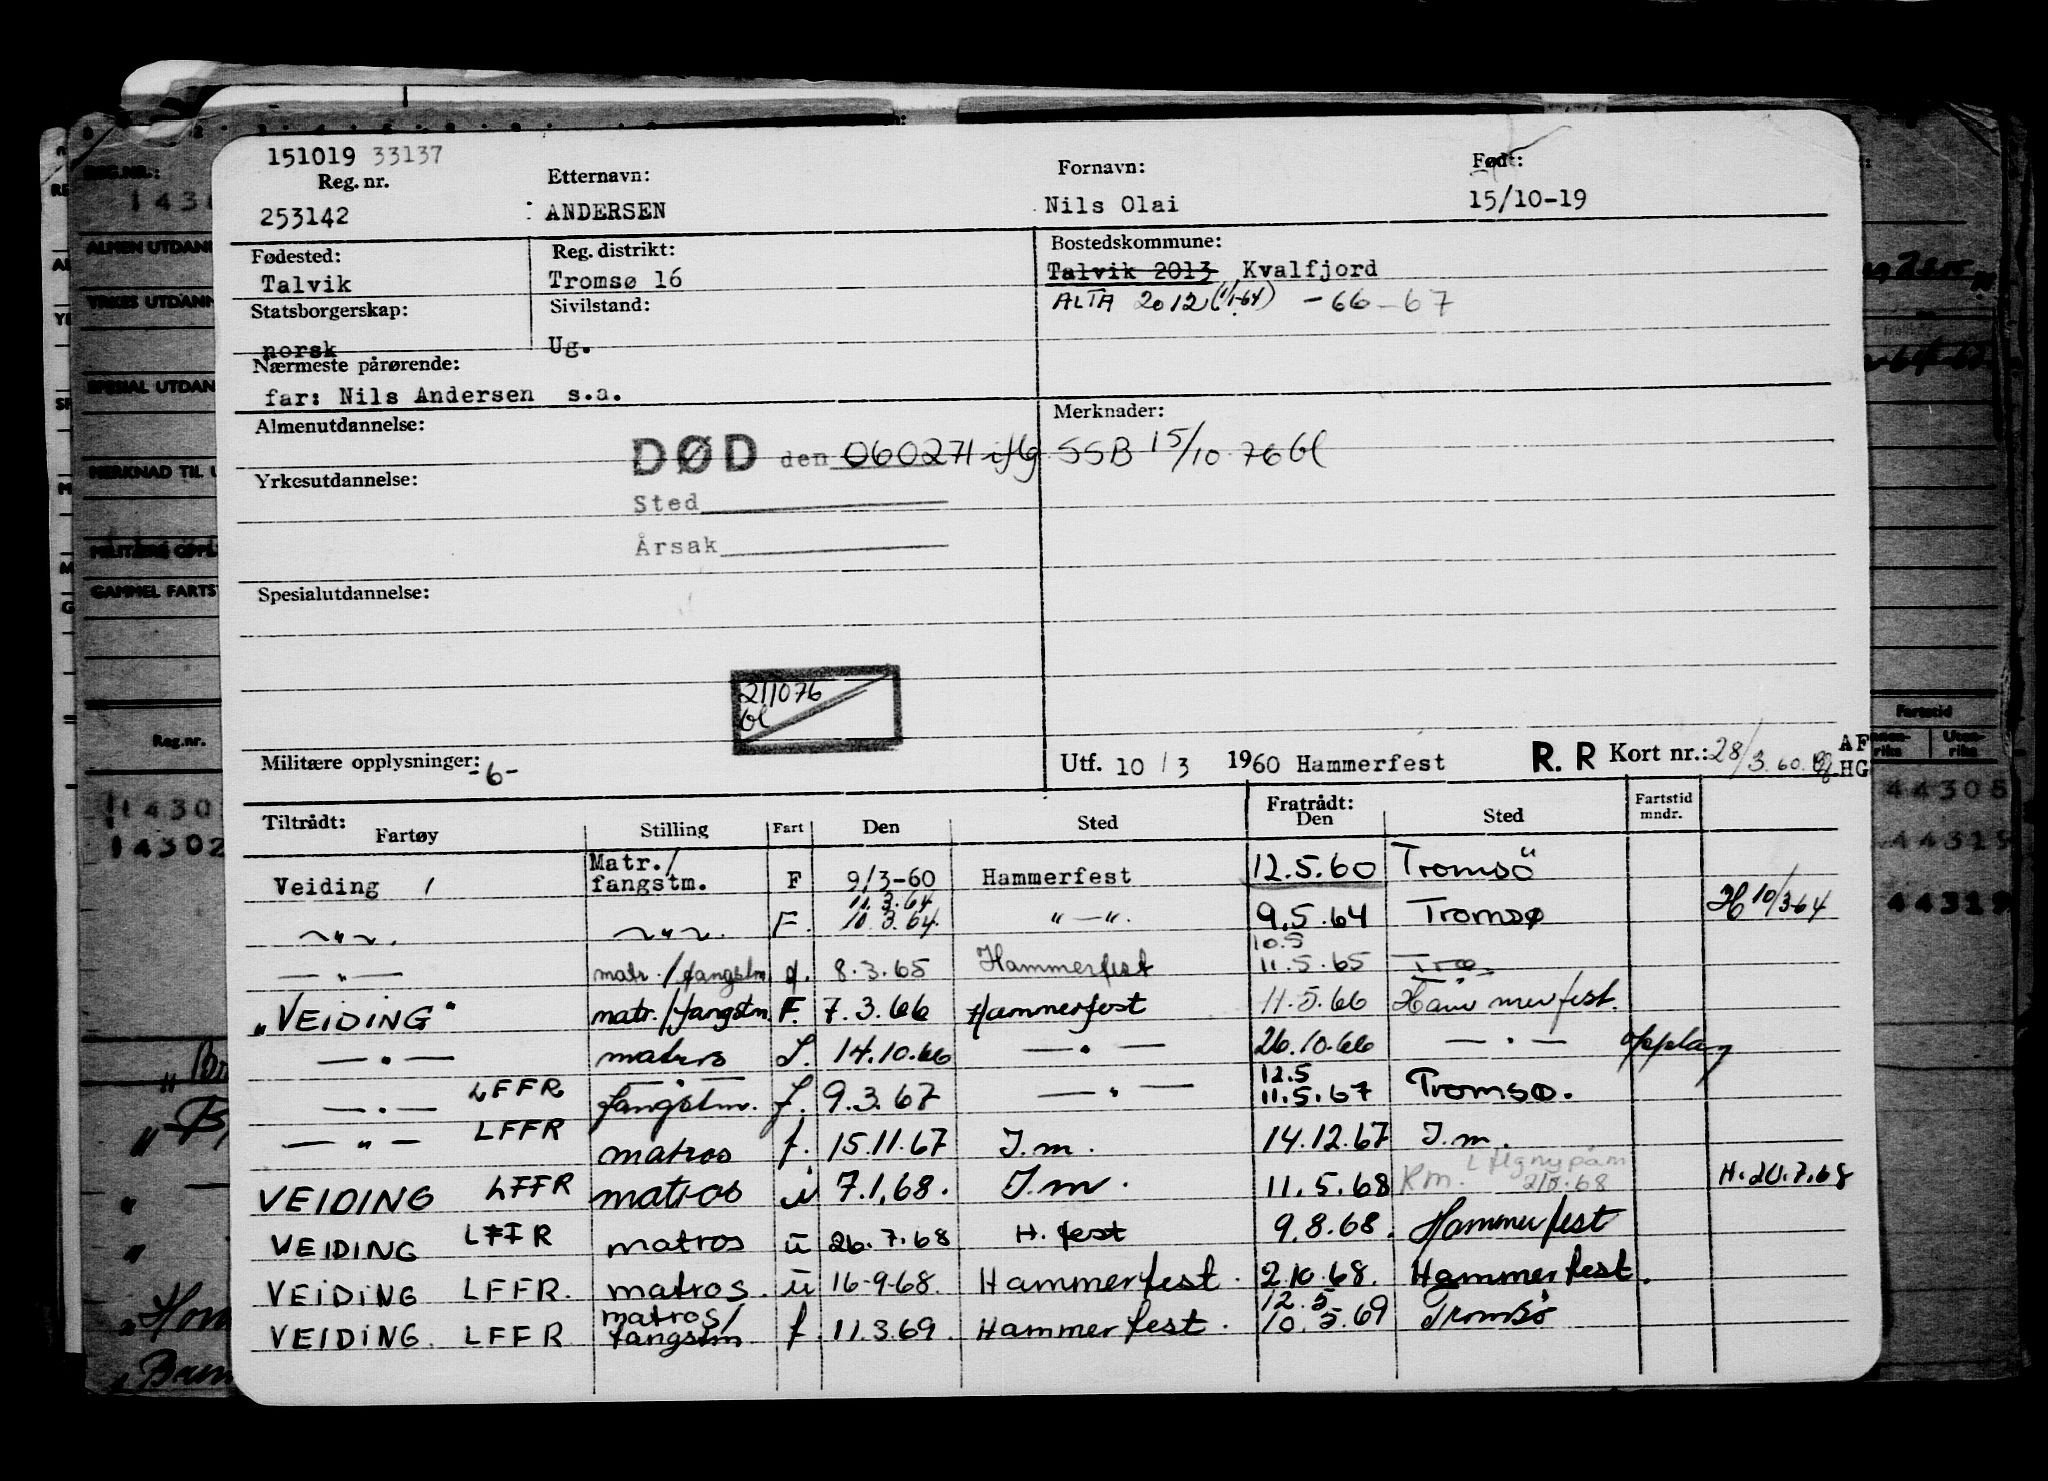 151019 33137
Reg. nr. Etternavn: Fornavn: Født:
253142 ANDERSEN Nils Olai 15/10-19
Fødested: Reg. distrikt: Bostedskommune:
Talvik Tromsø 16 Talvik 2013 Kvalfjord
Statsborgerskap: Sivilstand: ALTA 2012 (1/1-64) -66-67
norsk Ug.
Nærmeste pårørende:
far: Nils Andersen s.a.
Almenutdannelse: Merknader:
DØD den 060271 iflg SSB 15/10 76 bl
Yrkesutdannelse:
Sted
Årsak
Spesialutdannelse:
211076
bl
Militære opplysninger: -6- Utf. 10/3 1960 Hammerfest R. R Kort nr.: 28/3.60. AF
HG
Tiltrådt: Fratrådt:
Fartøy Stilling Fart Den Sted Den Sted Fartstid mndr.
Veiding 1 Matr./ fangstm. F 9/3-60 Hammerfest 12.5.60 Tromsö
11.3.64
—"— —"— F. 10.3.64. "—". 9.5.64 Tromsø H 10/3-64
10.5
—"— matr./fangstm f. 8.3.65 Hammerfest 11.5.65 Trø.
"VEIDING" matr./fangstm. F. 7.3.66 Hammerfest 11.5.66 Hammerfest.
—"— matros S. 14.10.66 —"— 26.10.66 —"— opplag
12.5
—"— LFFR —"— fangstm. f. 9.3.67 —"— 11.5.67 Tromsø.
—"— LFFR matros f. 15.11.67 I.m. 14.12.67 I.m.
VEIDING LFFR matros u 7.1.68. I.m. 11.5.68 Rm. H. 20.7.68
VEIDING LFFR matros u 26.7.68 H. fest 9.8.68. Hammerfest
VEIDING LFFR. matros. u 16-9-68. Hammerfest. 2.10.68. Hammerfest.
12.5
VEIDING. LFFR matros/ fangstm f. 11.3.69. Hammerfest. 10.5.69 Tromsö